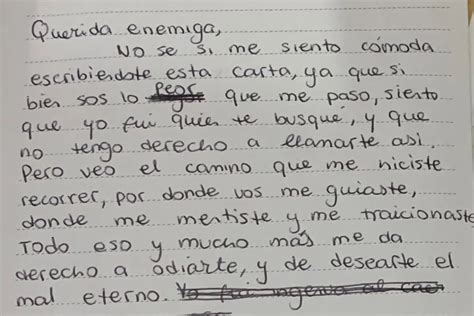 Querida enemiga,
No se si me siento cómoda
escribiendote esta carta, ya que si
bien sos lo peor que me paso, siento
que yo fui quien te busque, y que
no tengo derecho a llamarte asi.
Pero veo el camino que me hiciste
recorrer, por donde vos me guiaste,
donde me mentiste y me traicionaste
Todo eso y mucho más me da
derecho a odiarte, y de desearte el
mal eterno. Yo fui ingenua al caer